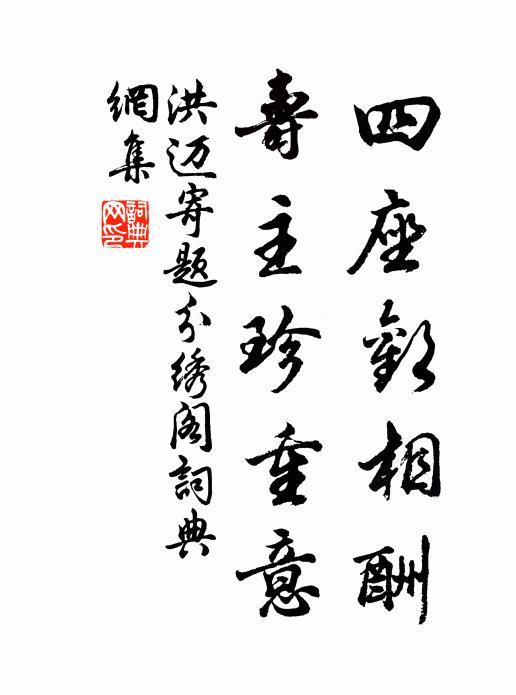 四座歡相酬
壽主珍重意
洪迈寄题分绣阁詞典
網集
詞典網印